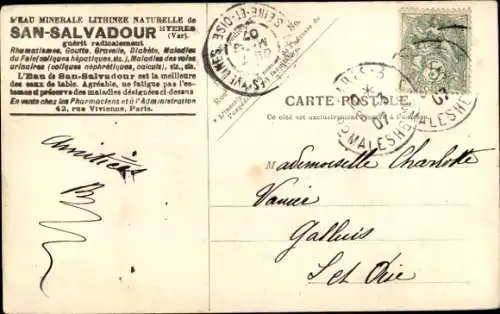 L'EAU MINERALE LITHINEE NATURELLE de
SAN-SALVADOUR HYERES
(Var)
guérit radicalement
Rhumatismes, Goutte, Gravelle, Diabète, Maladies
du Foie (coliques hépatiques, etc.), Maladies des voies
urinaires (coliques néphrétiques, calculs), etc., etc.
L'Eau de San-Salvadour est la meilleure
des eaux de table. Agréable, ne fatigue pas l'es-
tomac et préserve des maladies désignées ci-dessus
En vente chez les Pharmaciens et à l'Administration
42, rue Vivienne, Paris.
SEINE-ET-OISE
07
CARTE POSTALE
Ce côté est exclusivement
07
MALESHERBES
Amitiés
B
Mademoiselle Charlotte
Galluis
S et Oise